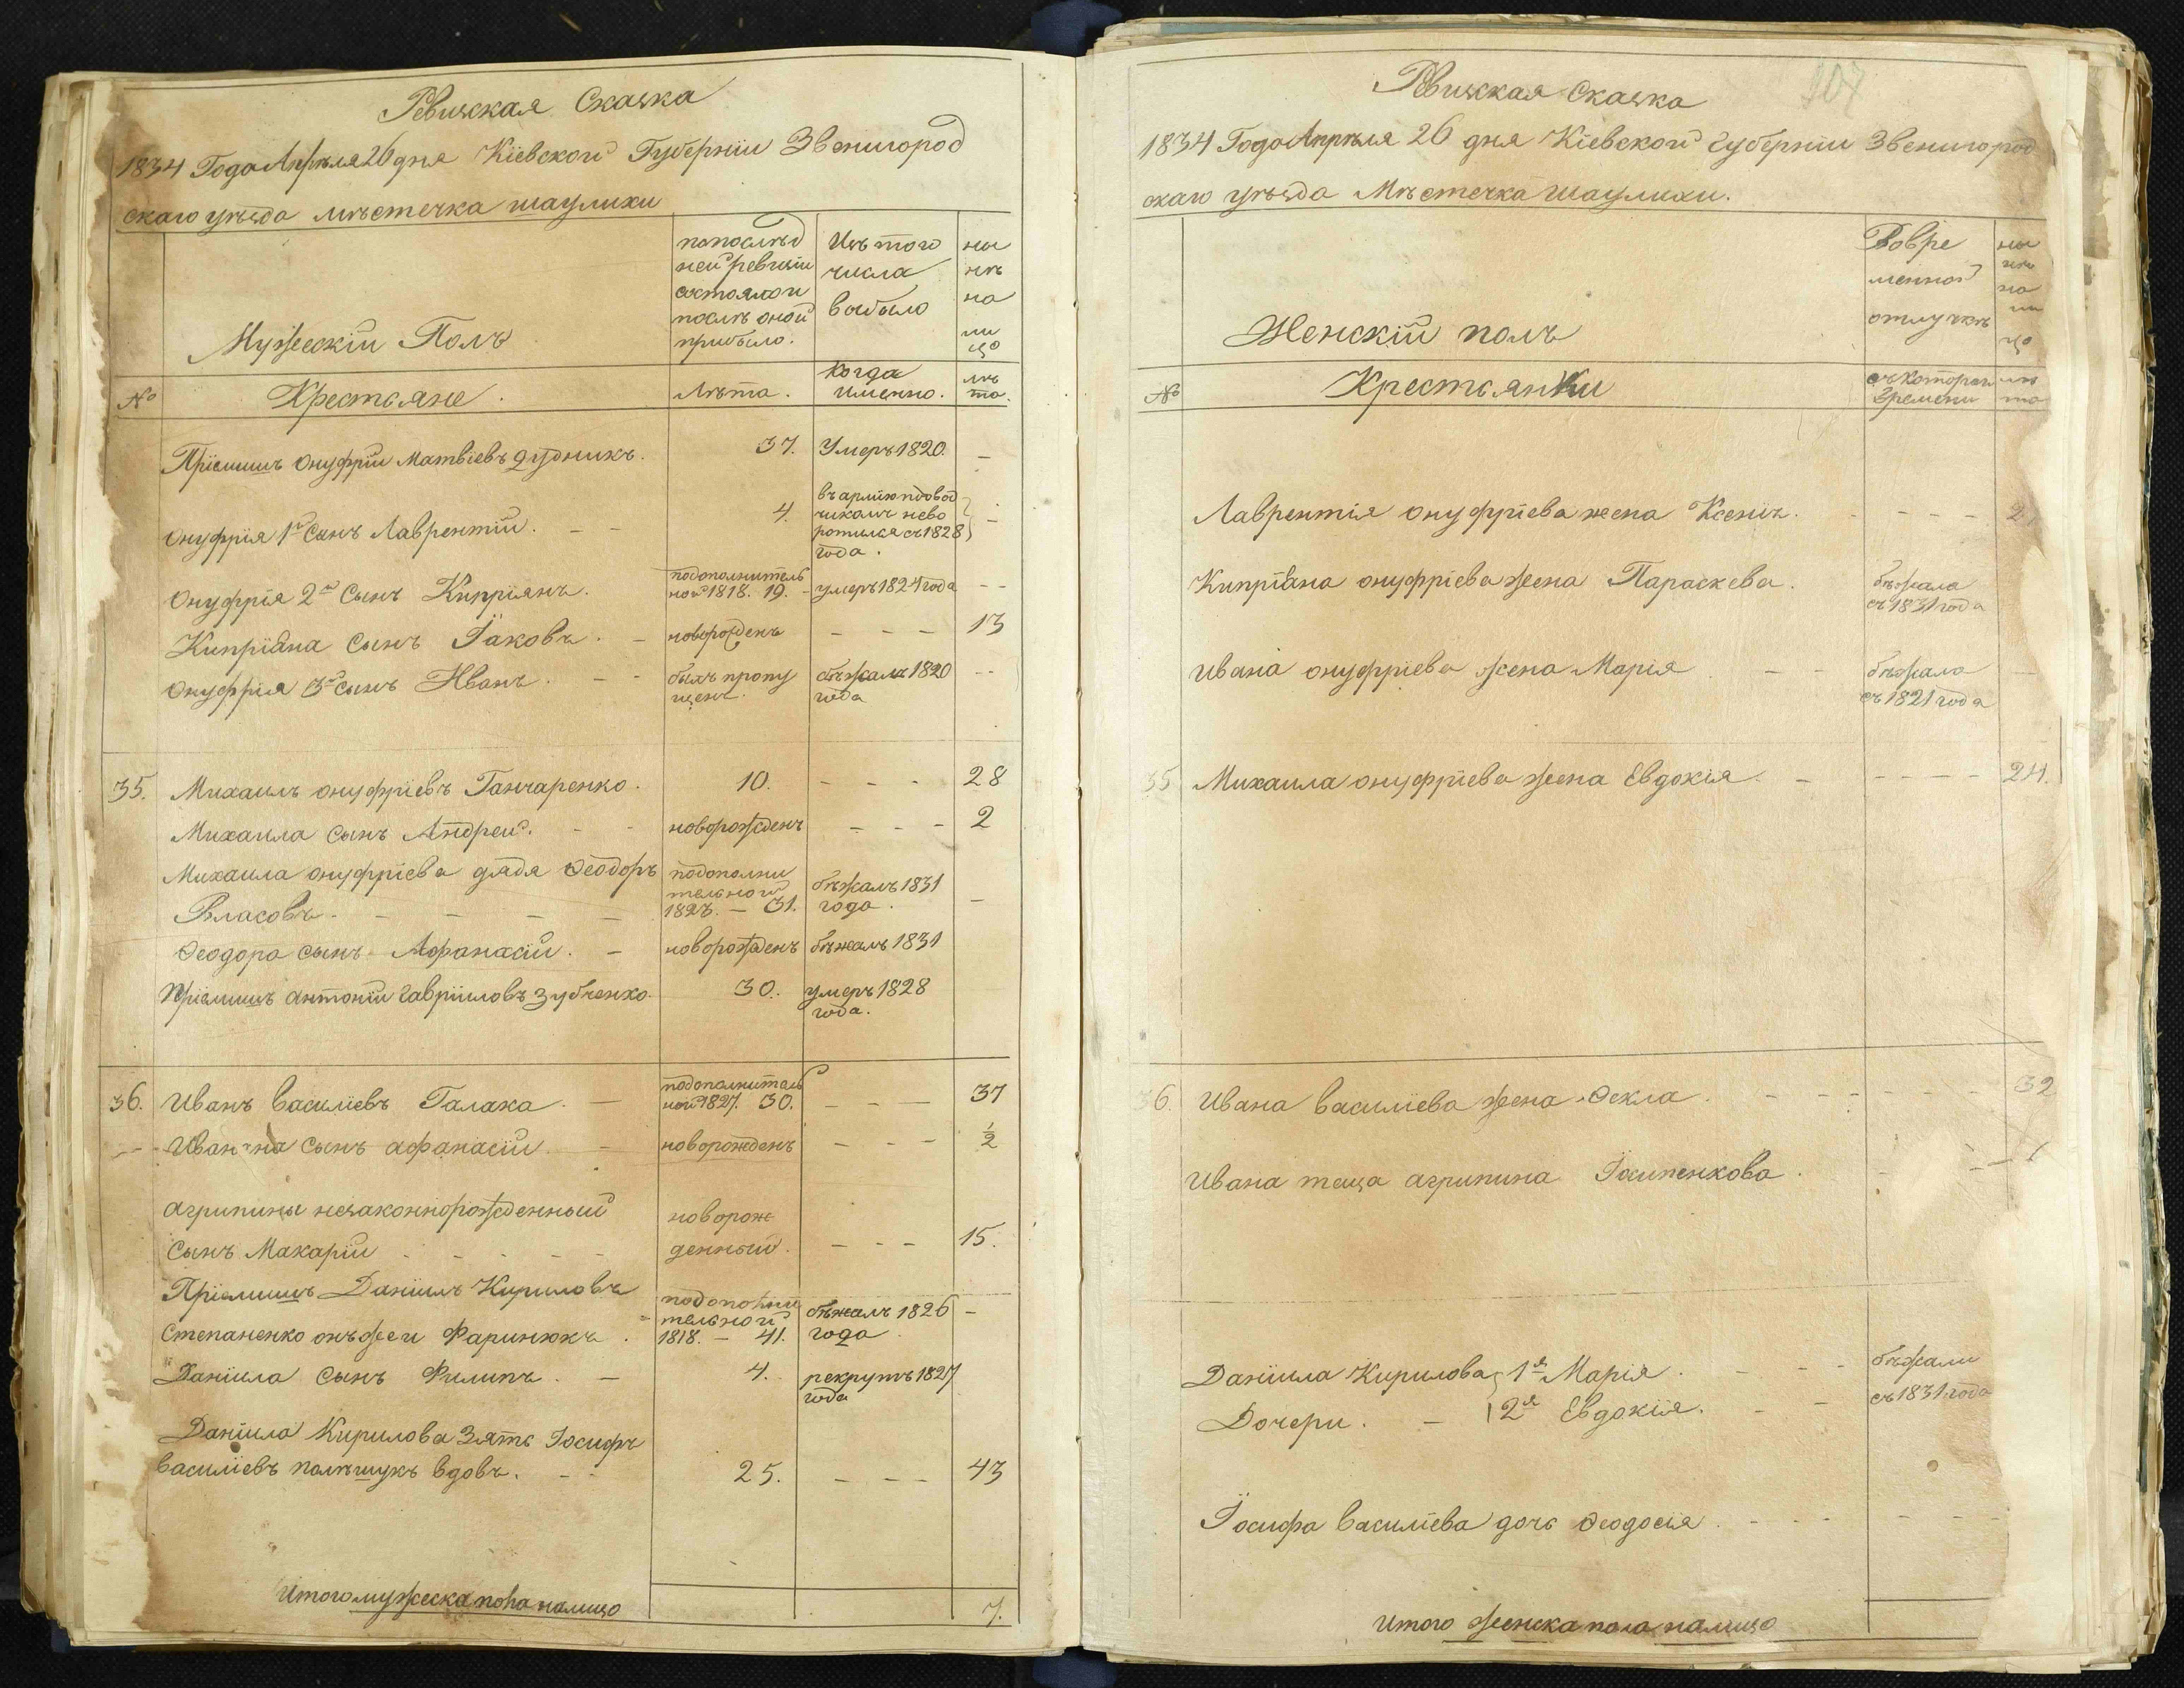 Ревизская Сказка
1834 Года Апреля 26 дня Кіевской Губерніи Звенигород
скаго уѣзда мѣстечка шаулихи
Мужескій Полъ
попослѣд
ней ревизіи
состояло и
послѣ оной
прибыло.
Изъ того
числа
выбыло
ны
нѣ
на
ли
цо
№
Крестьяне.
Лѣта.
Когда
именно.
лѣ
та.
Пріемышъ Онуфрій Матвіевъ дудникъ.
37.
Умеръ 1820.
—
Онуфрія 1й Сынъ Лаврентій. - -
4.
въ армію подвод
чикомъ нево
ротился съ 1828
года.
—
Онуфрія 2й Сынъ Кипріянъ.
подополнитель
ной 1818. 19.
- умеръ 1824 года
- -
Кипріана Сынъ Іаковъ. -
новорожденъ
- - -
13
Онуфрія 3й Сынъ Иванъ. - -
былъ пропу
щенъ.
бѣжалъ 1820
года
- -
35. Михаилъ онуфріевъ Ганчаренко.
10.
- - -
28
Михаила Сынъ Андрей. - -
новорожденъ
- - -
2
Михаила онуфріева дядя Ѳеодоръ
Власовъ. - - - -
подополни
тельной
1823. - 31.
бѣжалъ 1831
года.
-
Ѳеодора сынъ Афанасій. -
новорожденъ
бѣжалъ 1831
Пріемышъ антоній Гавріиловъ Зубченко.
30.
умеръ 1828
года.
36. Иванъ Василіевъ Галака. -
подополнитель
ной 1827. 30.
- - -
37
Ивана сынъ афанасій. -
новорожденъ
- - -
1/2
Агрипины незаконнорожденный
Сынъ Макарій - - - - -
новорож
денный.
- - -
15.
Пріемышъ Даніилъ Кириловъ
Степаненко онъ жеи Фаринюкъ.
подополни
тельной
1818. - 41.
бѣжалъ 1826
года.
-
Даніила Сынъ Филипъ. -
4.
рекрутъ 1827
года
Даніила Кирилова Зять Іосифъ
Василіевъ полѣшукъ вдовъ. - -
25.
- - -
43
Итого мужеска пола налицо
7.
107
Ревизская Сказка
1834 Года Апрѣля 26 дня Кіевской Губерніи Звенигород
скаго уѣзда Мѣстечка шаулихи.
Женскій полъ
Вовре
менной
отлучкѣ
ны
нѣ
на
ли
цо
№
Крестьянки
съ котораго
времени
лѣ
та
Лаврентія онуфріева жена Ксенія. - - - -
Кипріана онуфріева жена Параскева.
бѣжала
съ 1831 года
Ивана онуфріева жена Марія - -
бѣжала
съ 1821 года
-
35 Михаила онуфріева жена Евдокія. - - - - -
24.
36. Ивана Василіева жена Ѳекла. - - - - - -
32
Ивана теща агрипина Іосипенкова.
Даніила Кирилова 1я Марія. - - -
Дочери. - 2я Евдокія. - -
бѣжали
съ 1831 года
Іосифа Василіева дочь Ѳеодосія - - - -
Итого женска пола налицо